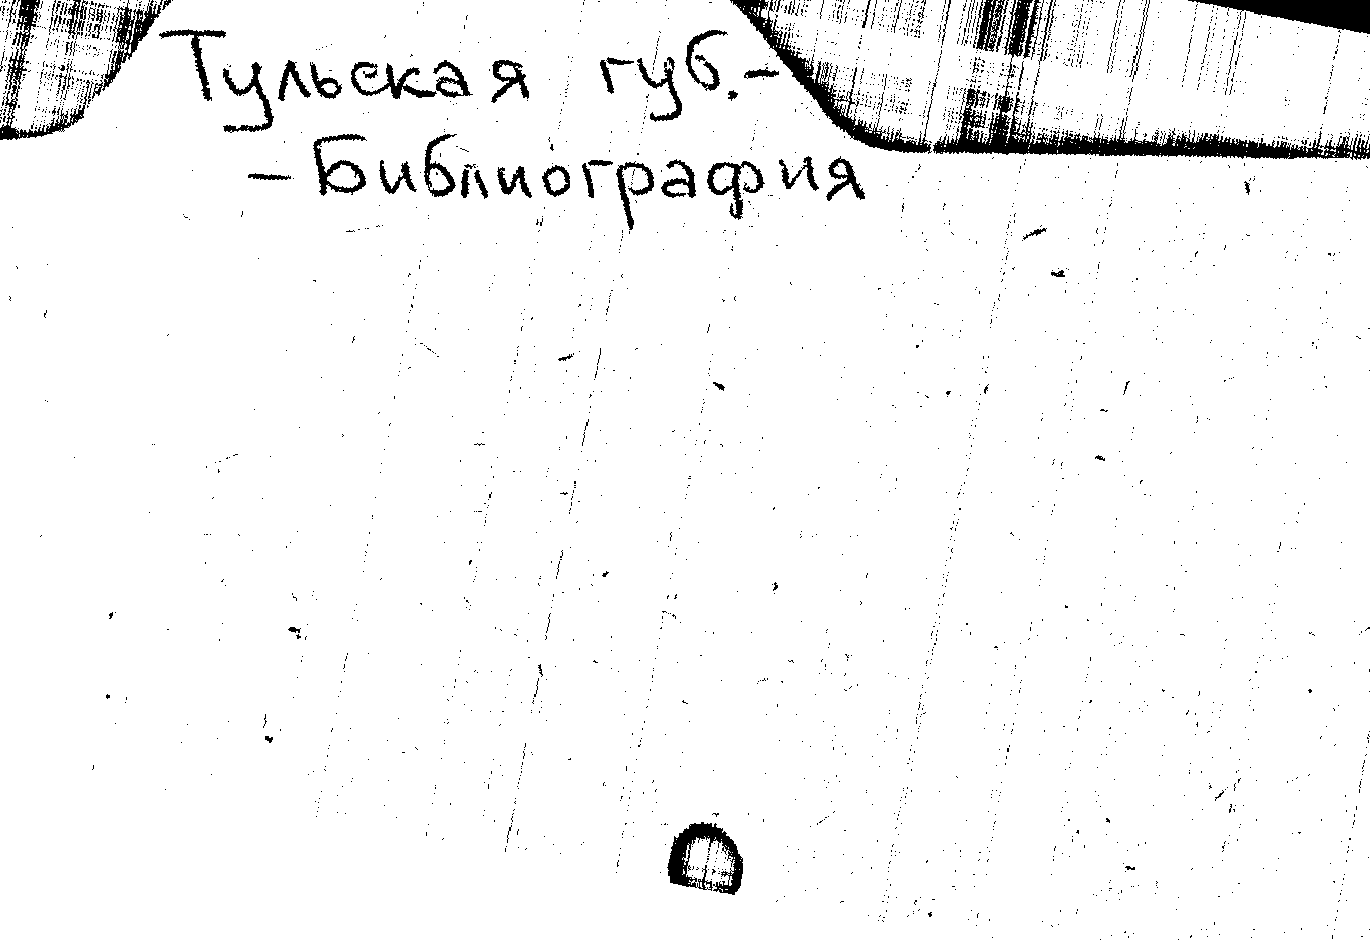 Тульская губ.-
- Библиография